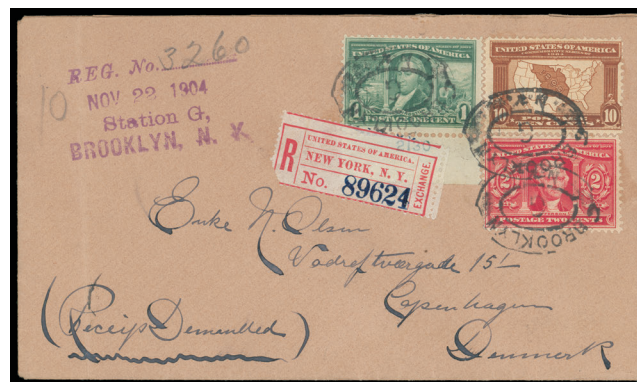 REG. No. 3260
10
NOV 22 1904
Station G,
BROOKLYN, N. Y.
UNITED STATES OF AMERICA
POSTAGE ONE CENT
1
2130
UNITED STATES OF AMERICA
1803
POSTAGE
10
UNITED STATES OF AMERICA
2 2
POSTAGE TWO CENTS
BROOKLYN
R
UNITED STATES OF AMERICA.
NEW YORK, N. Y.
No. 89624
EXCHANGE.
Enke N. Olsen
15 L
Copenhagen
(Receip Demanded)
Denmark